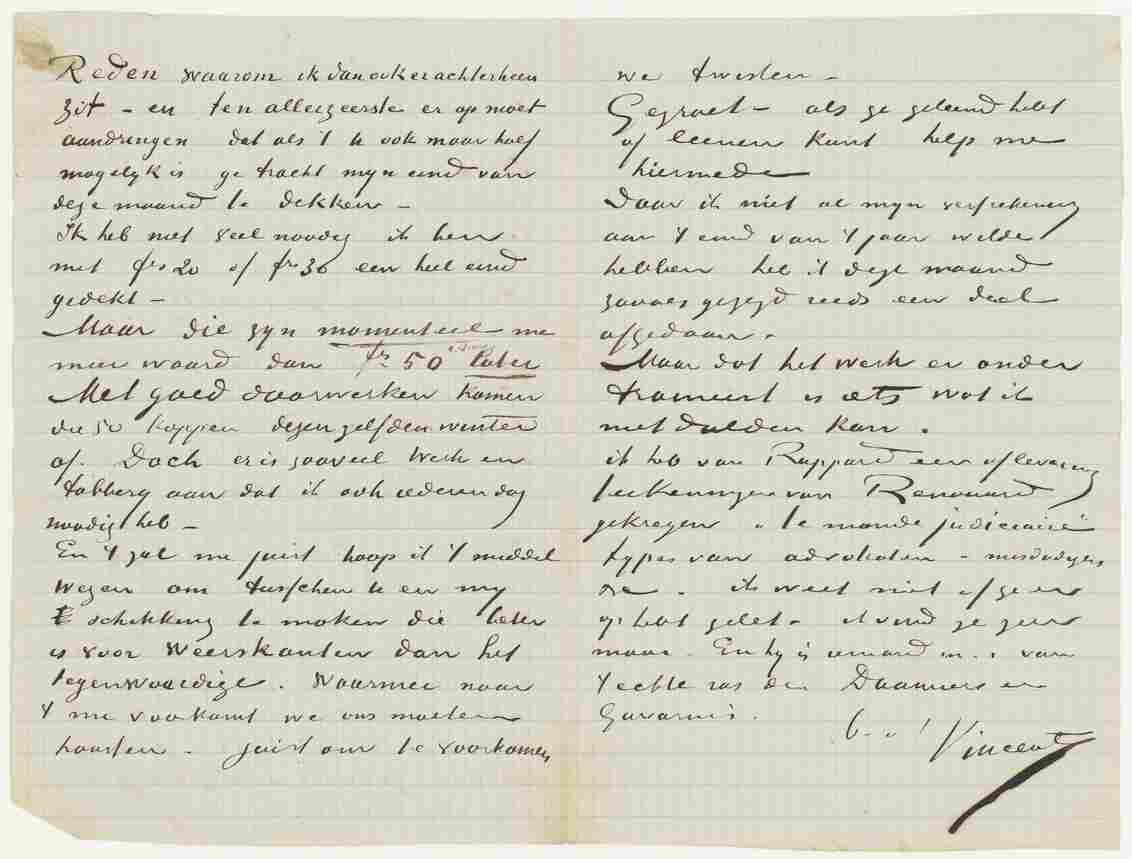 Reden waarom ik dan ook er achterheen
zit – en ten allerzeerste er op moet
aandringen dat als 't U ook maar half
mogelyk is ge tracht myn eind van
deze maand te dekken –
Ik heb niet veel noodig ik ben
met frs 20 of frs 30 een heel eind
gedekt –
Maar die zyn momenteel me
meer waard dan frs 50 later
Met goed doorwerken komen
die 50 koppen dezen zelfden winter
af. Doch er is zooveel werk en
tobbery aan dat ik ook iederen dag
noodig heb –
En 't zal me juist hoop ik 't middel
wezen om tusschen U en my
schikking te maken die beter
is voor weerskanten dan het
tegenwoordige. Waarmee naar
't me voorkomt we ons moeten
haasten – juist om te voorkomen
we twisten –
Gegroet – als ge geleend hebt
of leenen kunt help me
hiermede
Daar ik niet al myn verfrekening
aan 't eind van 't jaar wilde
hebben heb ik deze maand
zooals gezegd reeds een deel
afgedaan.
Maar dat het werk er onder
traineert is iets wat ik
niet dulden kan.
ik heb van Rappard een aflevering
teekeningen van Renouard
gekregen „le monde judiciaire"
types van advokaten – misdadigers
&c. ik weet niet of ge er
op hebt gelet – ik vind ze zeer
maar. En hy is iemand van
't echte ras der Daumiers en
Gavarnis.
Vincent